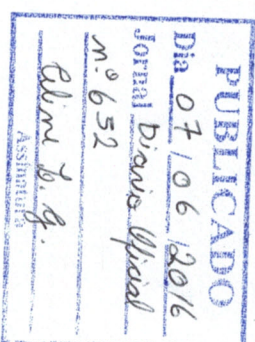 PUBLICADO
Dia 07/06/2016
Jornal Diario Oficial
nº 632
Assinatura